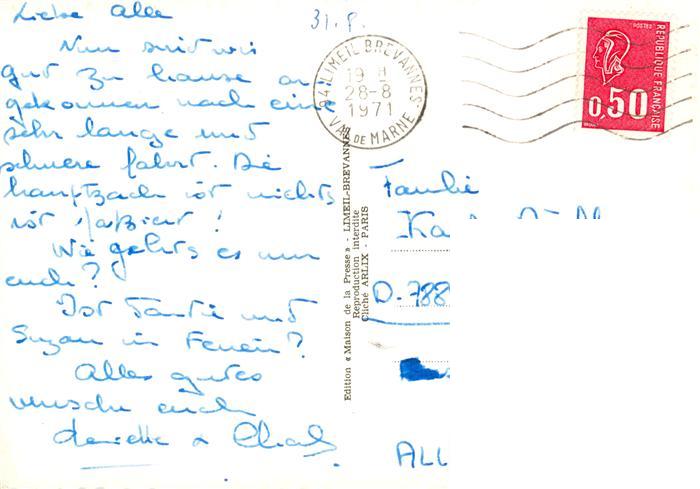 Liebe Alle
31.8.
Nun sind wir
gut zu hause an
gekommen nach eine
sehr lange und
schwere fahrt. Die
hauptzach ist nichts
ist paßiert!
Wie gehts es nun
euch?
Ist Tante und
Suzan in Ferein?
Alles gutes
wunsche euch
&
94 LIMEIL-BREVANNES
19 H
28-8
1971
VAL DE MARNE
POSTES
RÉPUBLIQUE FRANÇAISE
0,50
Edition « Maison de la Presse » - LIMEIL-BREVANNES
Reproduction interdite
Cliché ARLIX - PARIS
Familie
Ka
D-788
ALL